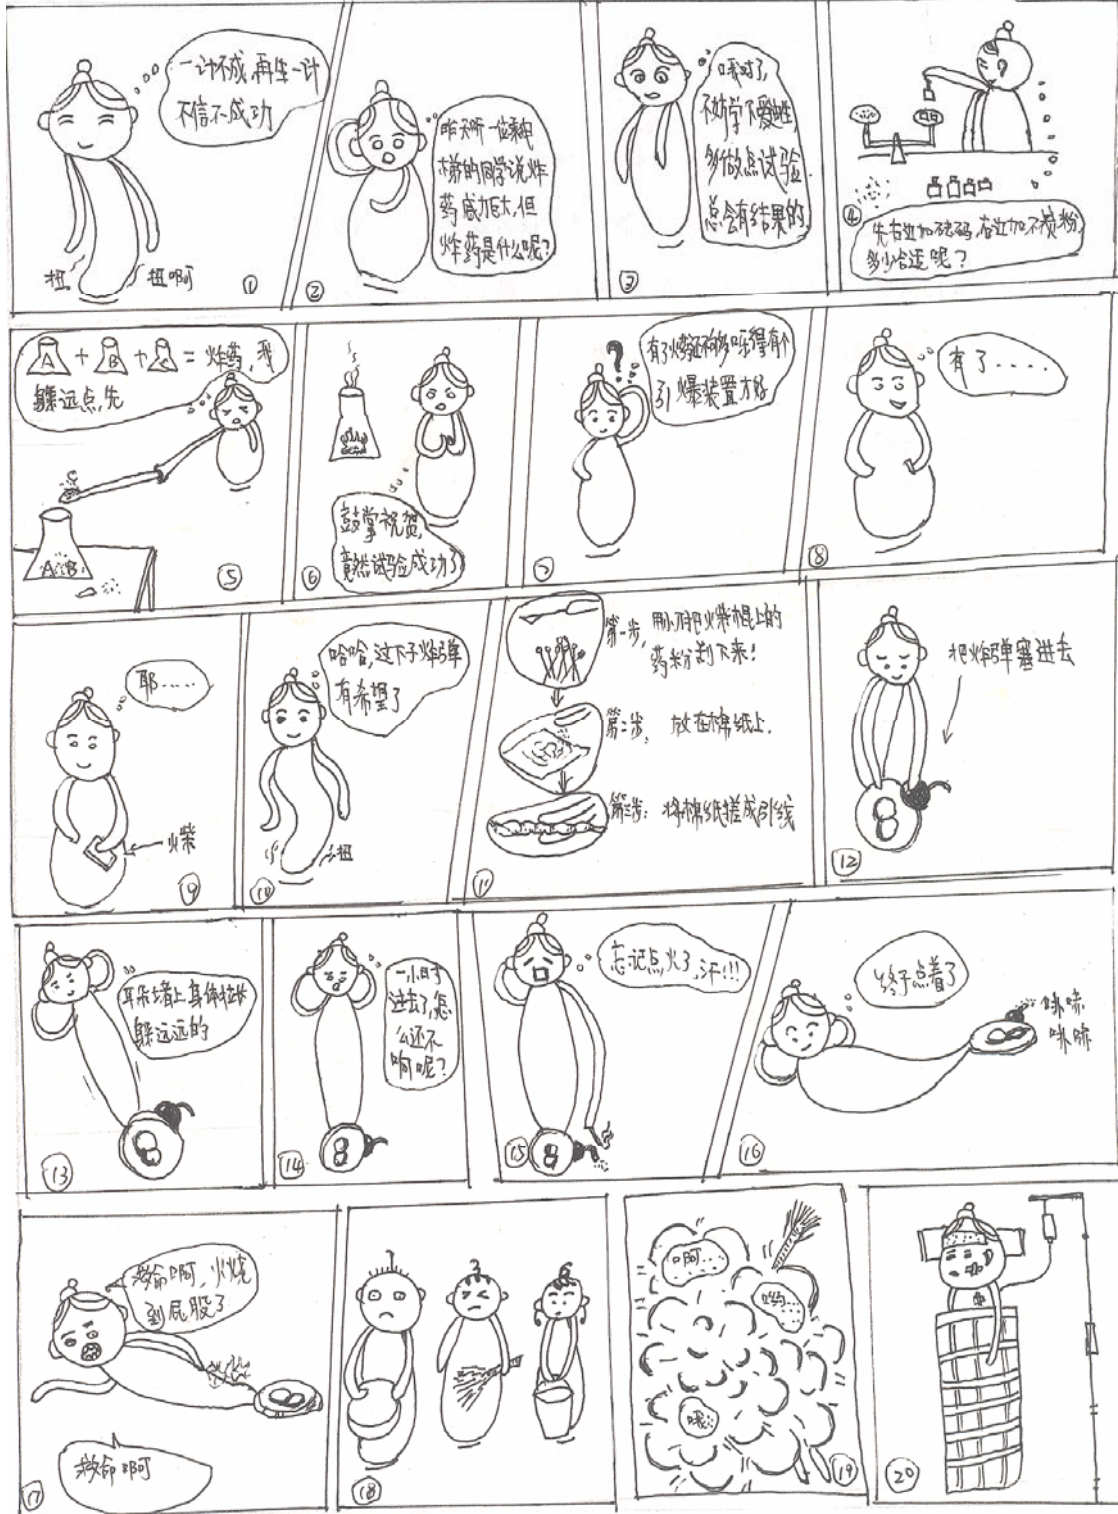 一计不成,再生一计
不信不成功
扭
扭啊
①
昨天听一位乘电
梯的同学说炸
药威力巨大,但
炸药是什么呢?
②
哦对了,
不妨学下爱迪生,
多做点试验
总会有结果的,
③
④
先右边加砝码,右边加不横粉,
多少合适呢?
A + B + C = 炸药,我
躲远点,先
A B
⑤
鼓掌祝贺,
竟然试验成功了
⑥
有了火药还不够呀得有个
引爆装置才好
?
⑦
有了.....
⑧
耶......
火柴
⑨
哈哈,这下子炸弹
有希望了
扭
⑩
第一步,用小刀把火柴棍上的
药粉刮下来!
第二步, 放在棉纸上.
第三步: 将棉纸搓成引线
11
把炸弹塞进去
12
耳朵堵上身体拉长
躲远远的
13
一小时
过去了,怎
么还不
响呢?
14
忘记点火了,汗!!!
15
终于点着了
哧哧
哧哧
16
救命啊,火烧
到屁股了
救命啊
17
18
啊...
哟...
哦...
19
20